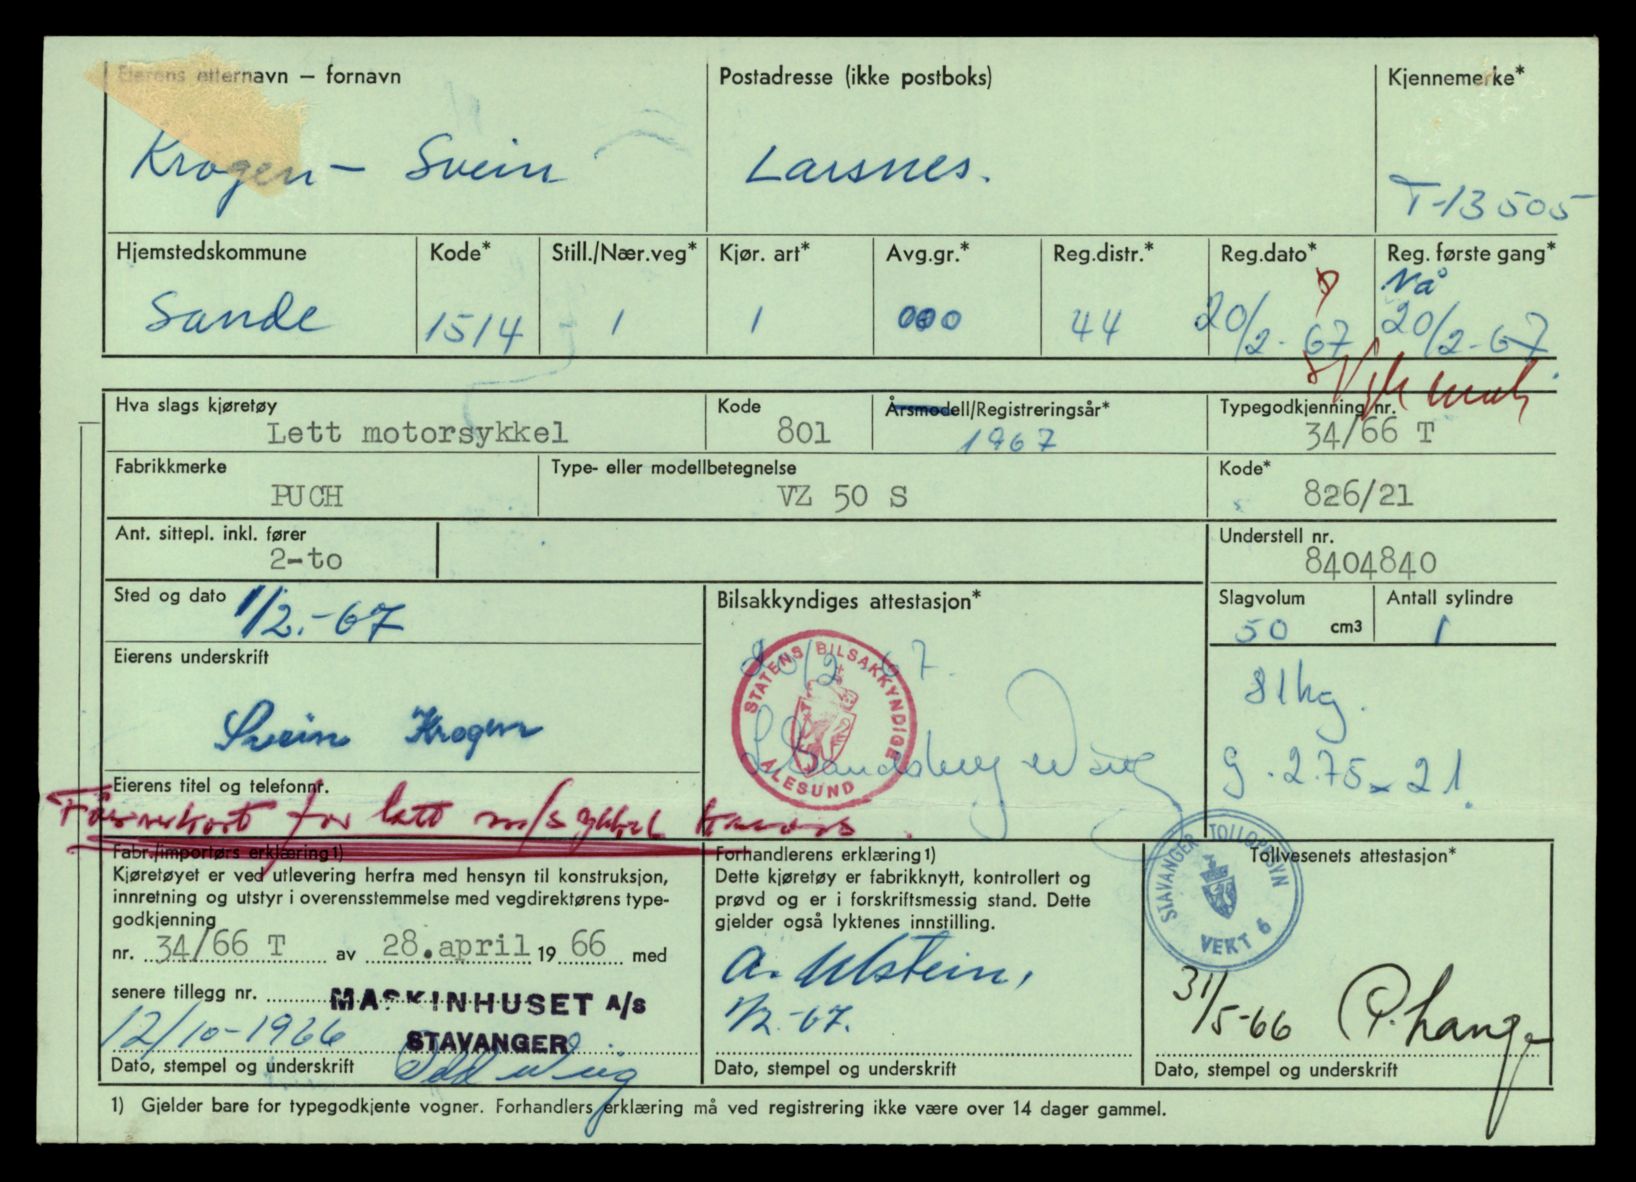 Eierens etternavn – fornavn
Krogen – Svein
Postadresse (ikke postboks)
Larsnes.
Kjennemerke*
T-13505
Hjemstedskommune
Sande
Kode*
1514
Still./Nær.veg*
1
Kjør. art*
1
Avg.gr.*
000
Reg.distr.*
44
Reg.dato*
20/2-67
Reg. første gang*
Nå
20/2-67
Hva slags kjøretøy
Lett motorsykkel
Kode
801
Årsmodell/Registreringsår*
1967
Typegodkjenning nr.
34/66 T
Fabrikkmerke
PUCH
Type- eller modellbetegnelse
VZ 50 S
Kode*
826/21
Ant. sittepl. inkl. fører
2-to
Understell nr.
8404840
Sted og dato
1/2.-67
Bilsakkyndiges attestasjon*
20/2 67.
STATENS BILSAKKYNDIGE
ÅLESUND
Slagvolum
50 cm3
Antall sylindre
1
Eierens underskrift
Svein Krogen
81kg.
g. 2.75 x 21.
Eierens titel og telefonnr.
Førerkort for lett m/sykkel haves.
Fabr./importørs erklæring 1)
Kjøretøyet er ved utlevering herfra med hensyn til konstruksjon,
innretning og utstyr i overensstemmelse med vegdirektørens type-
godkjenning
nr. 34/66 T av 28.april 19 66 med
senere tillegg nr.
MASKINHUSET A/S
STAVANGER
12/10-1966
Dato, stempel og underskrift
Forhandlerens erklæring 1)
Dette kjøretøy er fabrikknytt, kontrollert og
prøvd og er i forskriftsmessig stand. Dette
gjelder også lyktenes innstilling.
A. Ulstein,
1/2.-67.
Dato, stempel og underskrift
Tollvesenets attestasjon*
STAVANGER TOLLOPPSYN
VEKT 6
31/5-66 P. Lange
Dato, stempel og underskrift
1) Gjelder bare for typegodkjente vogner. Forhandlers erklæring må ved registrering ikke være over 14 dager gammel.